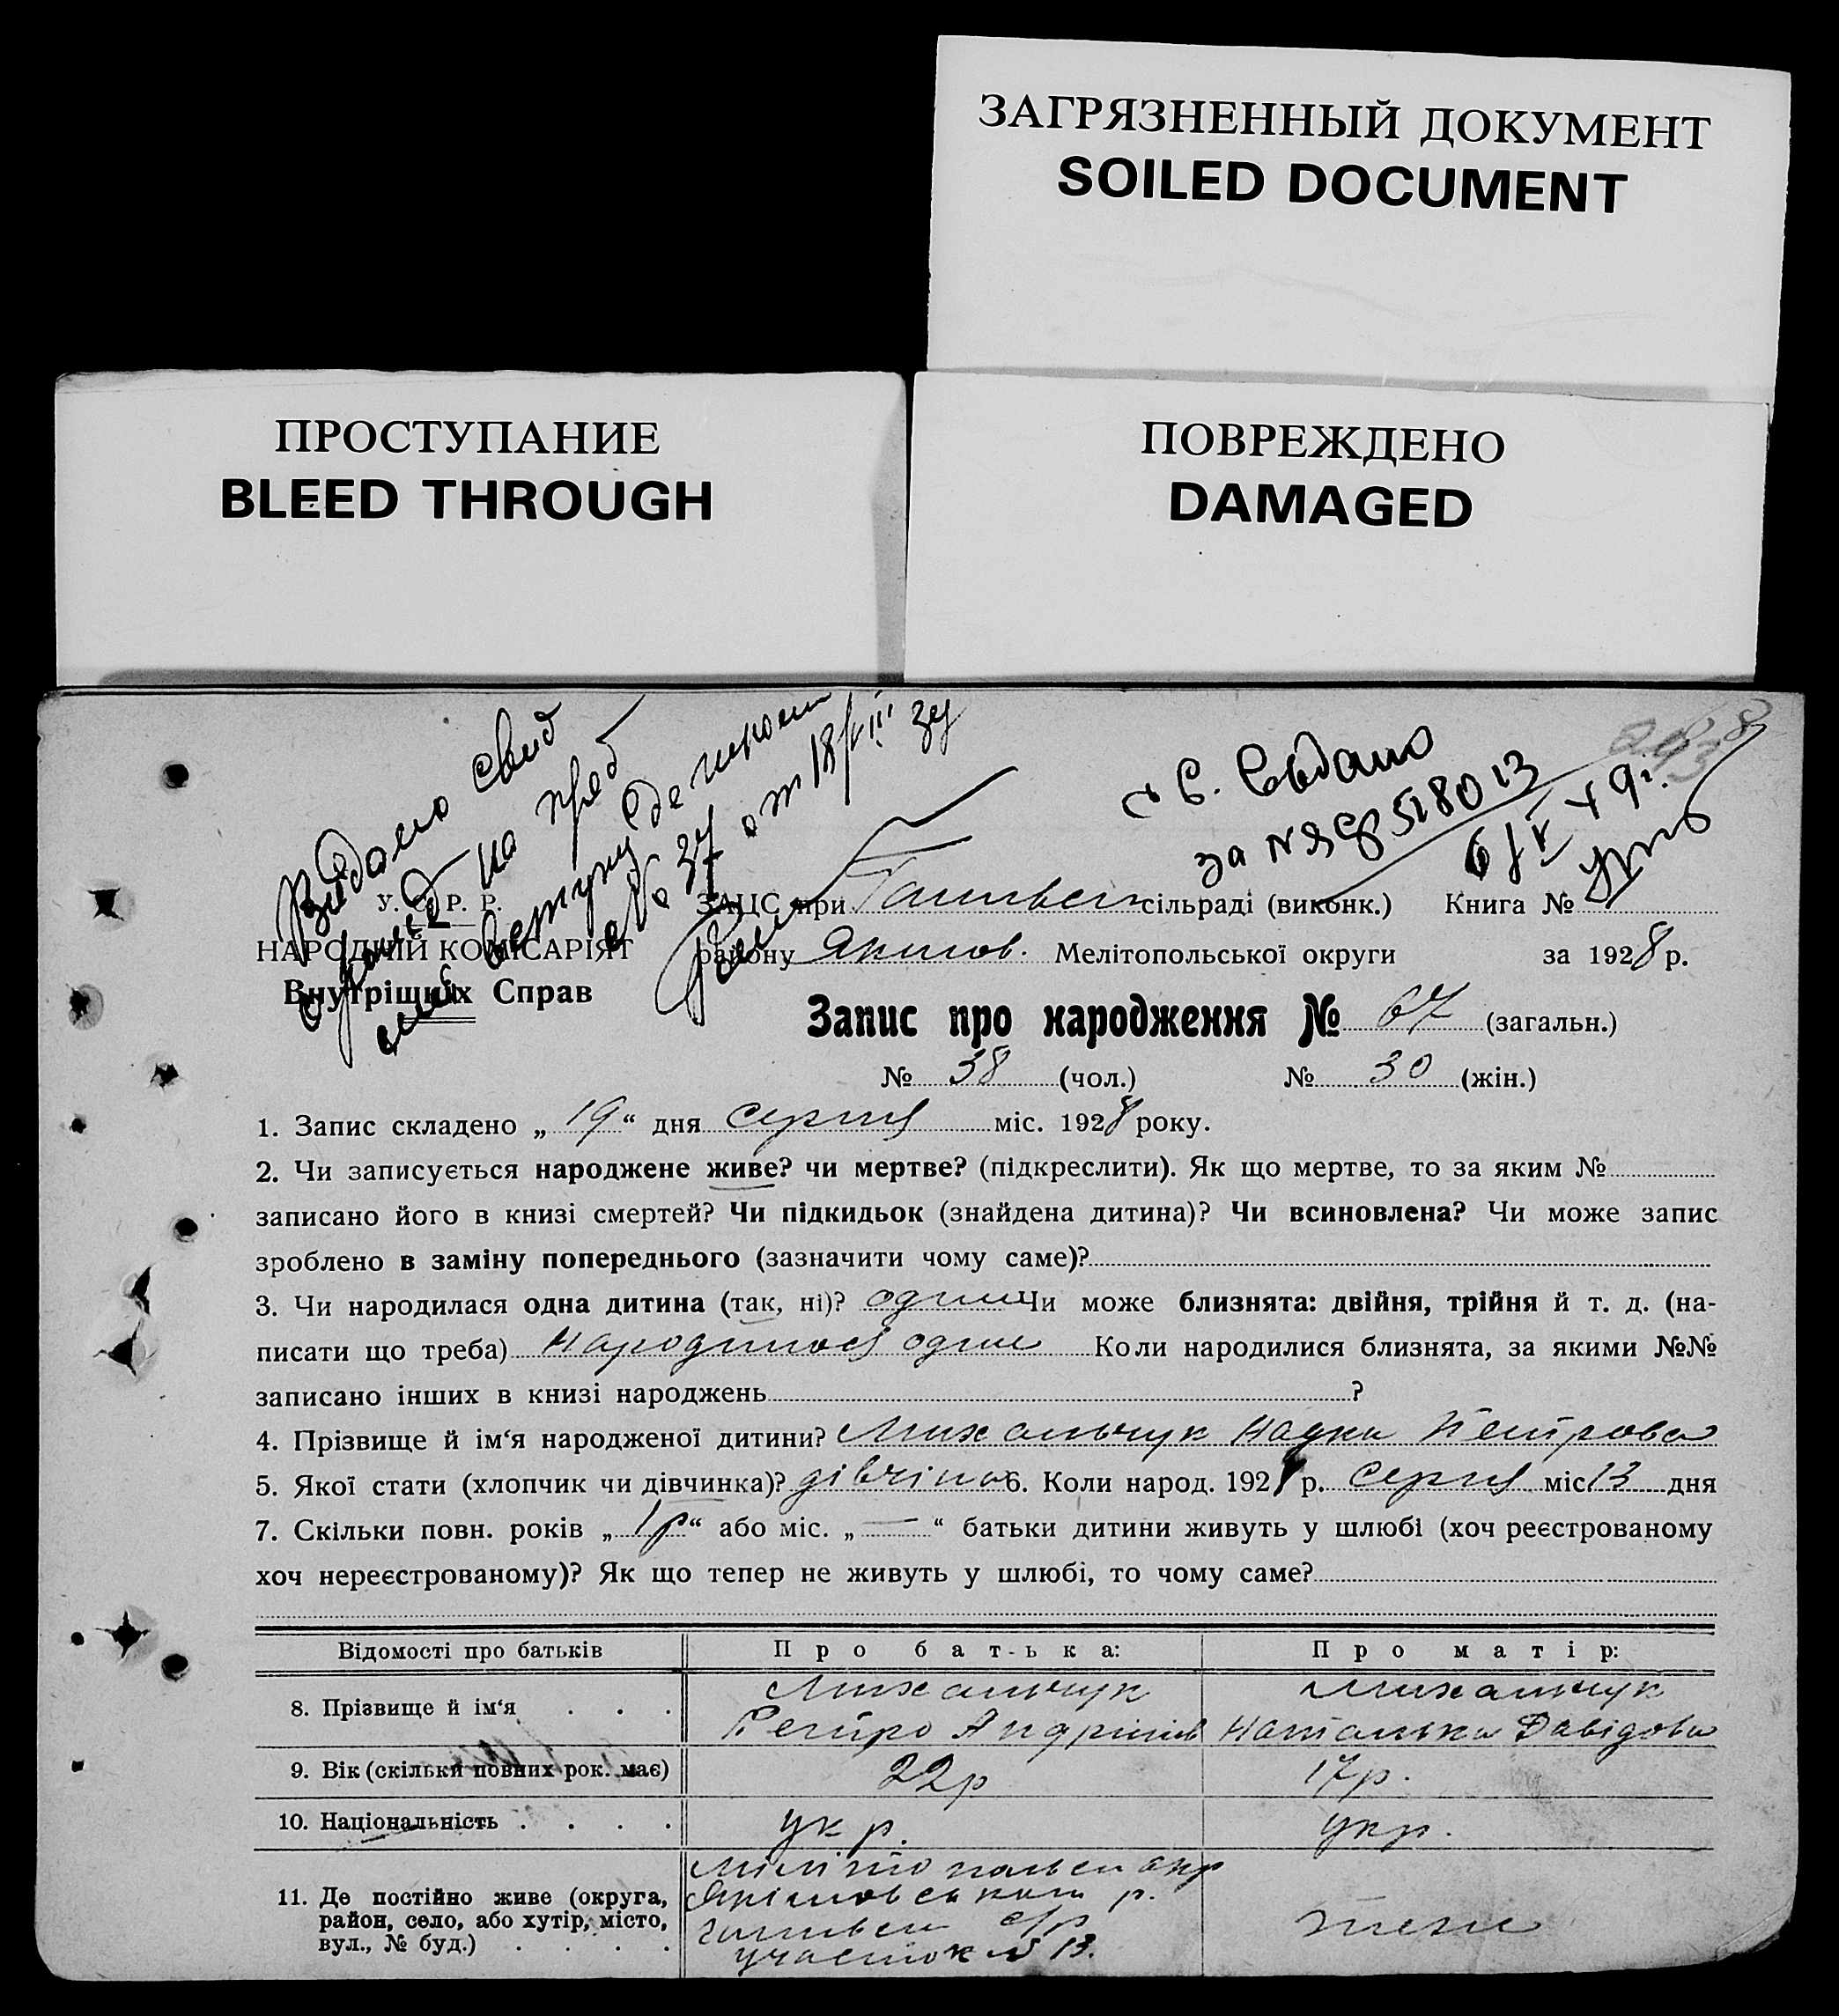 ЗАГРЯЗНЕННЫЙ ДОКУМЕНТ
SOILED DOCUMENT
ПРОСТУПАНИЕ
BLEED THROUGH
ПОВРЕЖДЕНО
DAMAGED
Видано свид
на
от 18/VIII 37
за № 518013
У. С. Р. Р.
НАРОДНІЙ КОМІСАРІЯТ
Внутрішніх Справ
ЗАЦС при сільраді (виконк.) Книга №
району Якимов. Мелітопольської округи за 1928 р.
Запис про народження № 67 (загальн.)
№ 38 (чол.) № 30 (жін.)
1. Запис складено „ 19 “ дня серпня міс. 1928 року.
2. Чи записується народжене живе? чи мертве? (підкреслити). Як що мертве, то за яким №
записано його в книзі смертей? Чи підкидьок (знайдена дитина)? Чи всиновлена? Чи може запис
зроблено в заміну попереднього (зазначити чому саме)?
3. Чи народилася одна дитина (так, ні)? одне Чи може близнята: двійня, трійня й т. д. (на-
писати що треба) народилося одне Коли народилися близнята, за якими №№
записано інших в книзі народжень ?
4. Прізвище й ім‘я народженої дитини? Михальчук Петрова
5. Якої стати (хлопчик чи дівчинка)? дівчина 6. Коли народ. 1928 р. серпня міс 13 дня
7. Скільки повн. років „ 1р “ або міс. „ — “ батьки дитини живуть у шлюбі (хоч реєстрованому
хоч нереєстрованому)? Як що тепер не живуть у шлюбі, то чому саме?
Відомості про батьків Про батька: Про матір:
8. Прізвище й ім‘я . . . Михальчук Михальчук
Петро Андріїв Наталька Давідова
9. Вік (скільки повних рок. має) 22р 17р.
10. Національність . . . . укр. укр.
11. Де постійно живе (округа, район, село, або хутір, місто, вул., № буд.) . . . . Мілітопольськ окр
Якімовського р.
с/р
участок № 13.